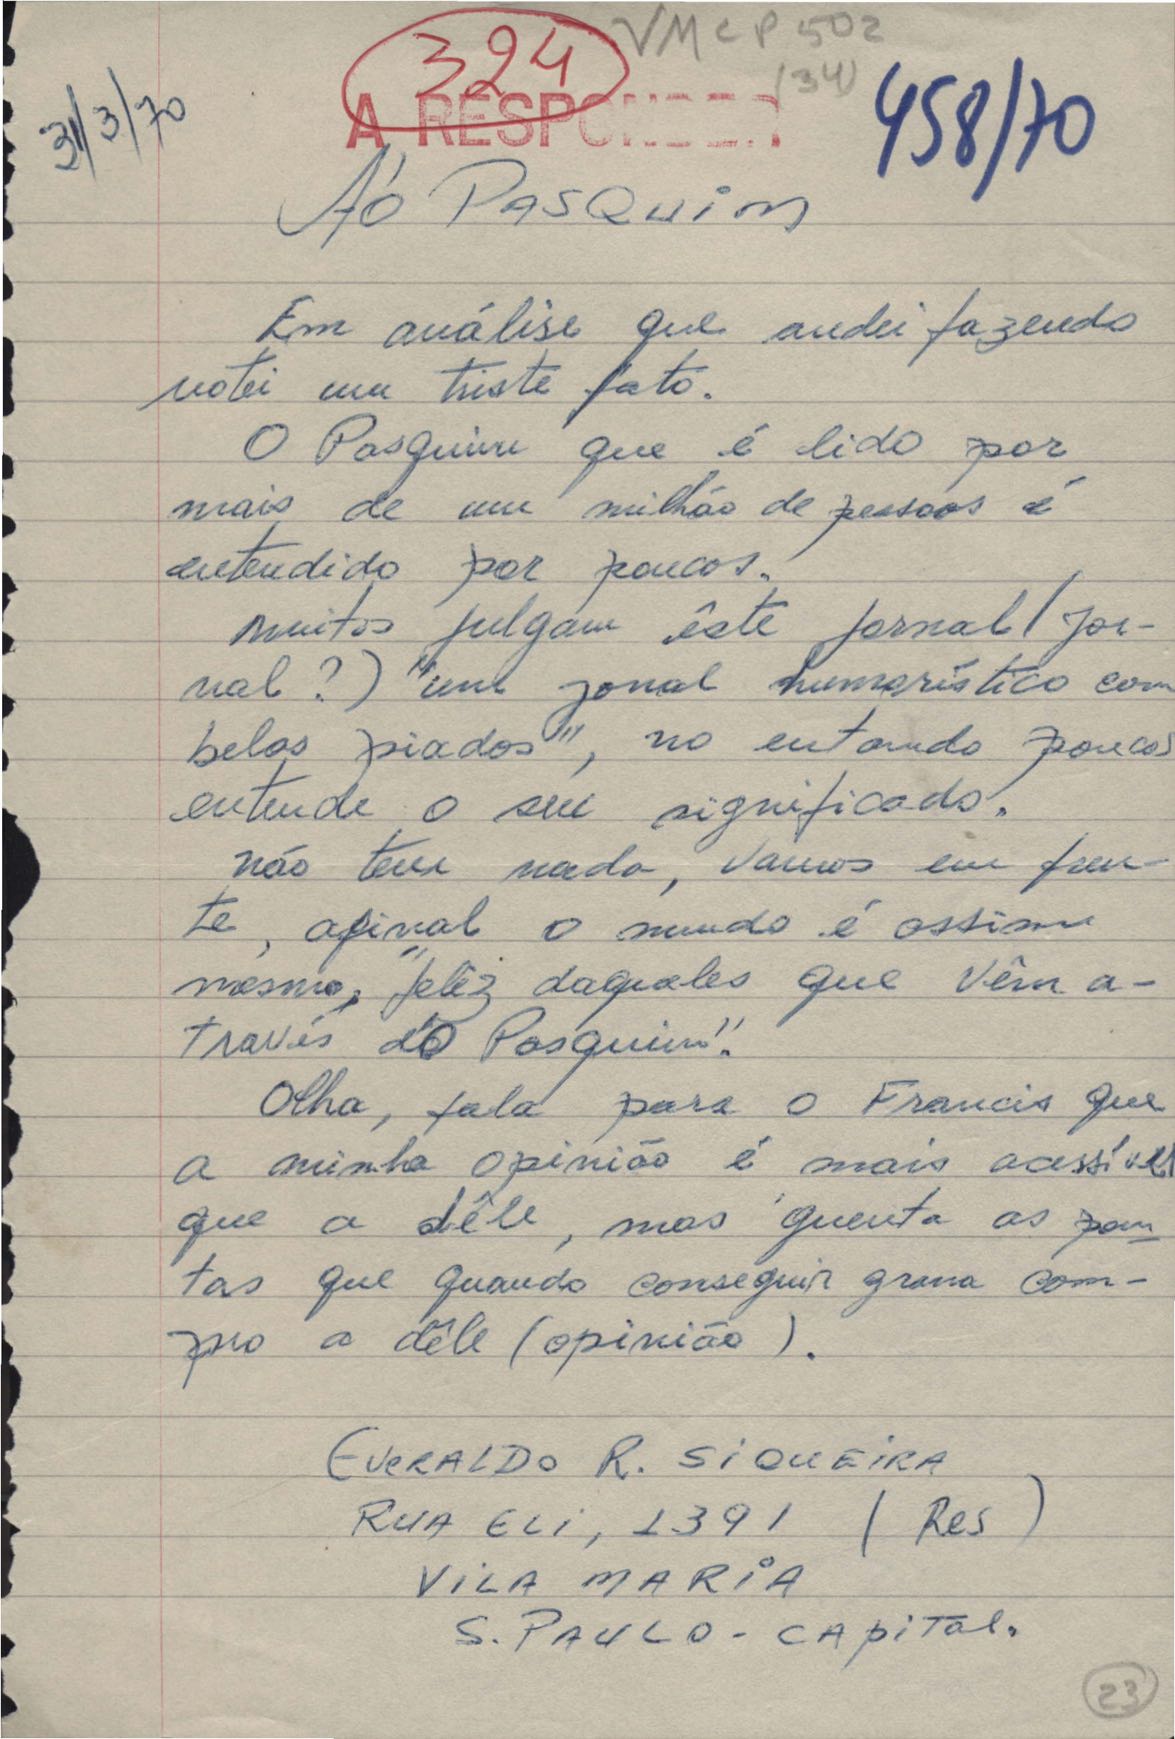 VMCP502
(34)
324
A RESPONDER
31/3/70
458/70
Aó PASQUim
Em análise que andei fazendo
notei um triste fato.
O Pasquim que é lido por
mais de um milhão de pessoas é
entendido por poucos.
Muitos julgam êste jornal (jor-
nal?) "um jonal humorístico com
belas piadas", no entando poucos
entende o seu significado.
Não tem nada, vamos em fren-
te, afinal o mundo é assim
mesmo, "feliz daqueles que vêm a-
través dO Pasquim".
Olha, fala para o Francis que
a minha opinião é mais acessível
que a dêle, mas 'guenta as pon-
tas que quando conseguir grana com-
pro a dêle (opinião).
EVERALDO R. SIQUEIRA
RUA ELI, 1391 (Res)
VILA MARIA
S. PAULO - CAPITAL.
23